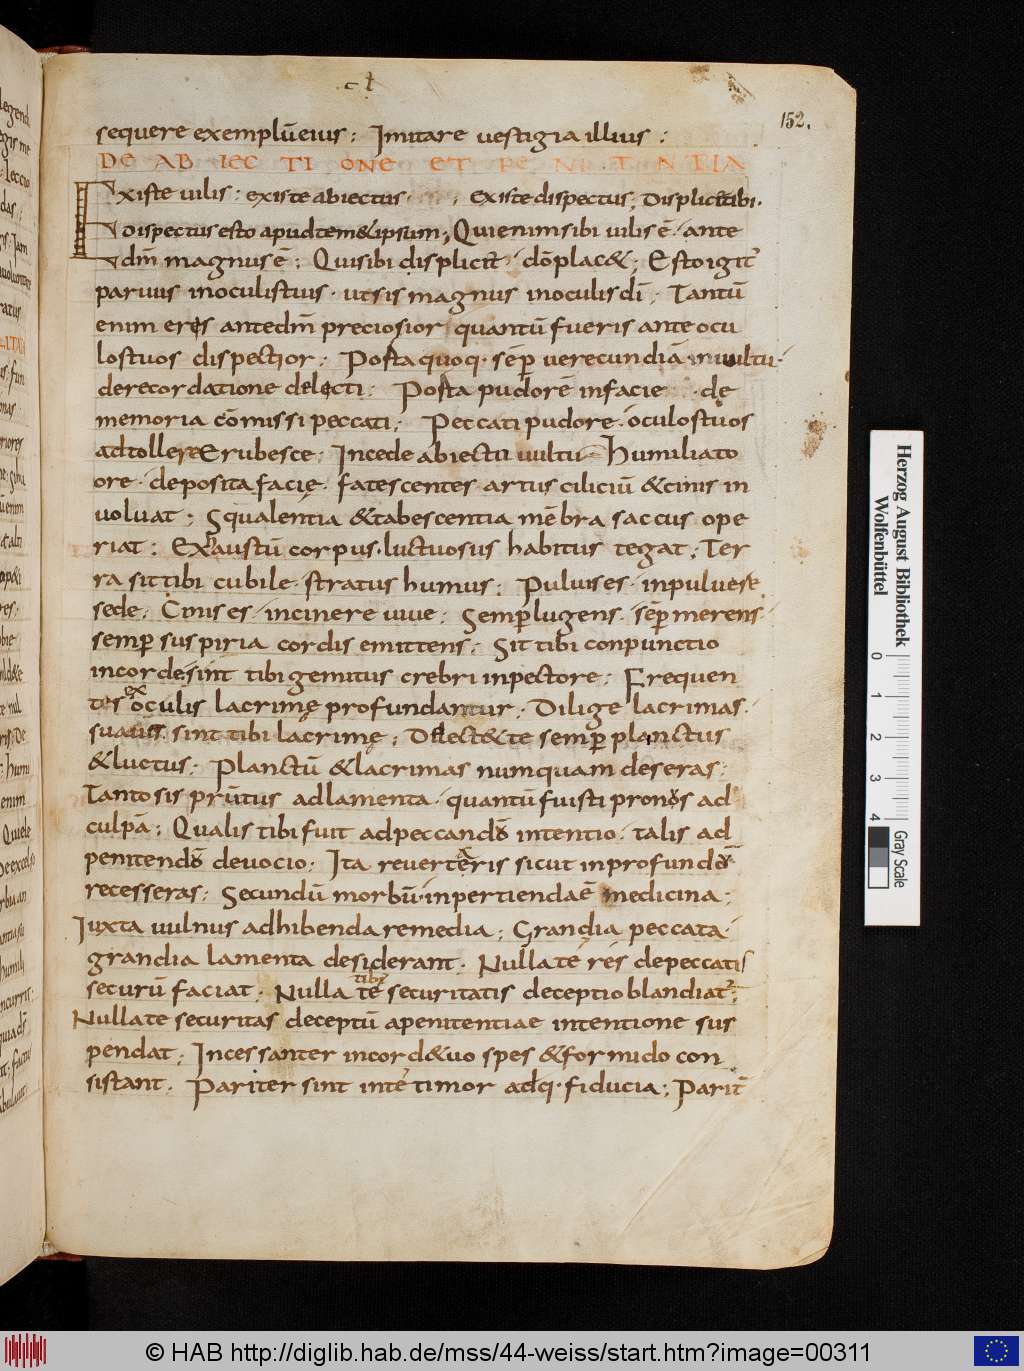 cł
152.
sequere exemplū eius; Imitare vestigia illius;
DE ABIECTIONE ET PENITENTIA
Existe uilis; existe abiectus; existe dispectus; Displicetibi.
Dispectus esto apud temet ipsum; Qui enim sibi uilis ē. ante
dm̄ magnus ē; Qui sibi displicet. dō placet; Esto igit᷑
paruus in oculis tuis. ut sis magnus in oculis dī; Tantū
enim eris ante dm̄ preciosior quantū fueris ante ocu
los tuos dispectior; Porta quoq. sēp uerecundiā in uultu.
de recordatione delicti; Porta pudorē in facie de
memoria cōmissi peccati; Peccati pudore. oculos tuos
adtollere Erubesce; Incede abiecto uultu. Humiliato
ore. deposita facie. fatescentes artus ciliciū & cinis in
uoluat; Squalentia & tabescentia mēbra saccus ope
riat; Exhaustū corpus. luctuosus habitus tegat; Ter
ra sit tibi cubile. stratus humus; Puluis es. in puluere
sede; Cinis es. in cinere uiue; Semper lugens. sēp merens.
semp suspiria cordis emittens; Sit tibi conpunctio
in corde sint tibi gemitus crebri in pectore; Frequen
tes ex oculis lacrimę profundantur; Dilige lacrimas.
suaues sint tibi lacrimę; Delectet te semp planctus
& luctus; Planctū & lacrimas numquam deseras;
Tanto sis prūtus ad lamenta. quantū fuisti pronus ad
culpā; Qualis tibi fuit ad peccandū intentio. talis ad
penitendū deuocio; Ita reuerteris sicut in profundū
recesseras; Secundū morbū. inpertienda ē medicina;
Iuxta uulnus adhibenda remedia; Grandia peccata.
grandia lamenta desiderant. Nulla te res de peccatis
securū faciat. Nulla te tibi securitatis deceptio blandiat᷑;
Nulla te securitas deceptū a penitentiae intentione sus
pendat; Incessanter in corde tuo spes & formido con
sistant. Pariter sint in te timor adq. fiducia; Parit̄
Herzog August Bibliothek
Wolfenbüttel
0 1 2 3 4
Gray Scale
© HAB http://diglib.hab.de/mss/44-weiss/start.htm?image=00311